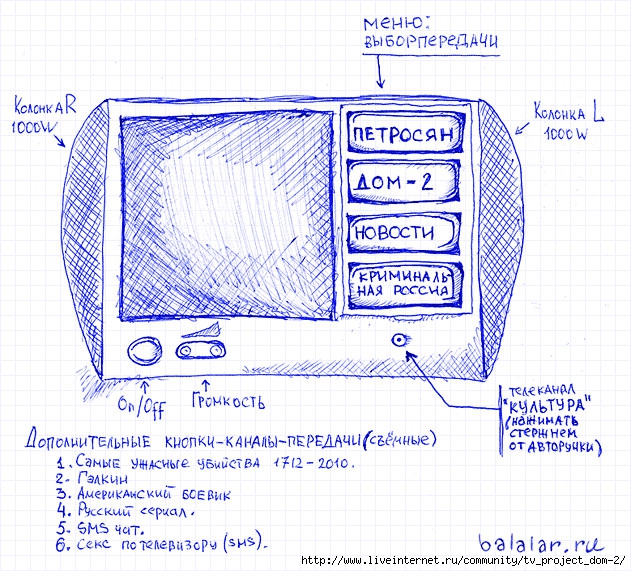 МЕНЮ:
ВЫБОР ПЕРЕДАЧИ
КОЛОНКА R
1000W
КОЛОНКА L
1000W
ПЕТРОСЯН
ДОМ-2
НОВОСТИ
КРИМИНАЛЬ-
НАЯ РОССИЯ
On/Off
ГРОМКОСТЬ
ТЕЛЕКАНАЛ
"КУЛЬТУРА"
(НАЖИМАТЬ
СТЕРЖНЕМ
ОТ АВТОРУЧКИ)
ДОПОЛНИТЕЛЬНЫЕ КНОПКИ-КАНАЛЫ-ПЕРЕДАЧИ (СЪЁМНЫЕ)
1. САМЫЕ УЖАСНЫЕ УБИЙСТВА 1712-2010.
2- ГАЛКИН
3. АМЕРИКАНСКИЙ БОЕВИК
4. РУССКИЙ СЕРИАЛ.
5- SMS ЧАТ.
6. СЕКС ПО ТЕЛЕВИЗОРУ (SMS).
balalar.ru
http://www.liveinternet.ru/community/tv_project_dom-2/